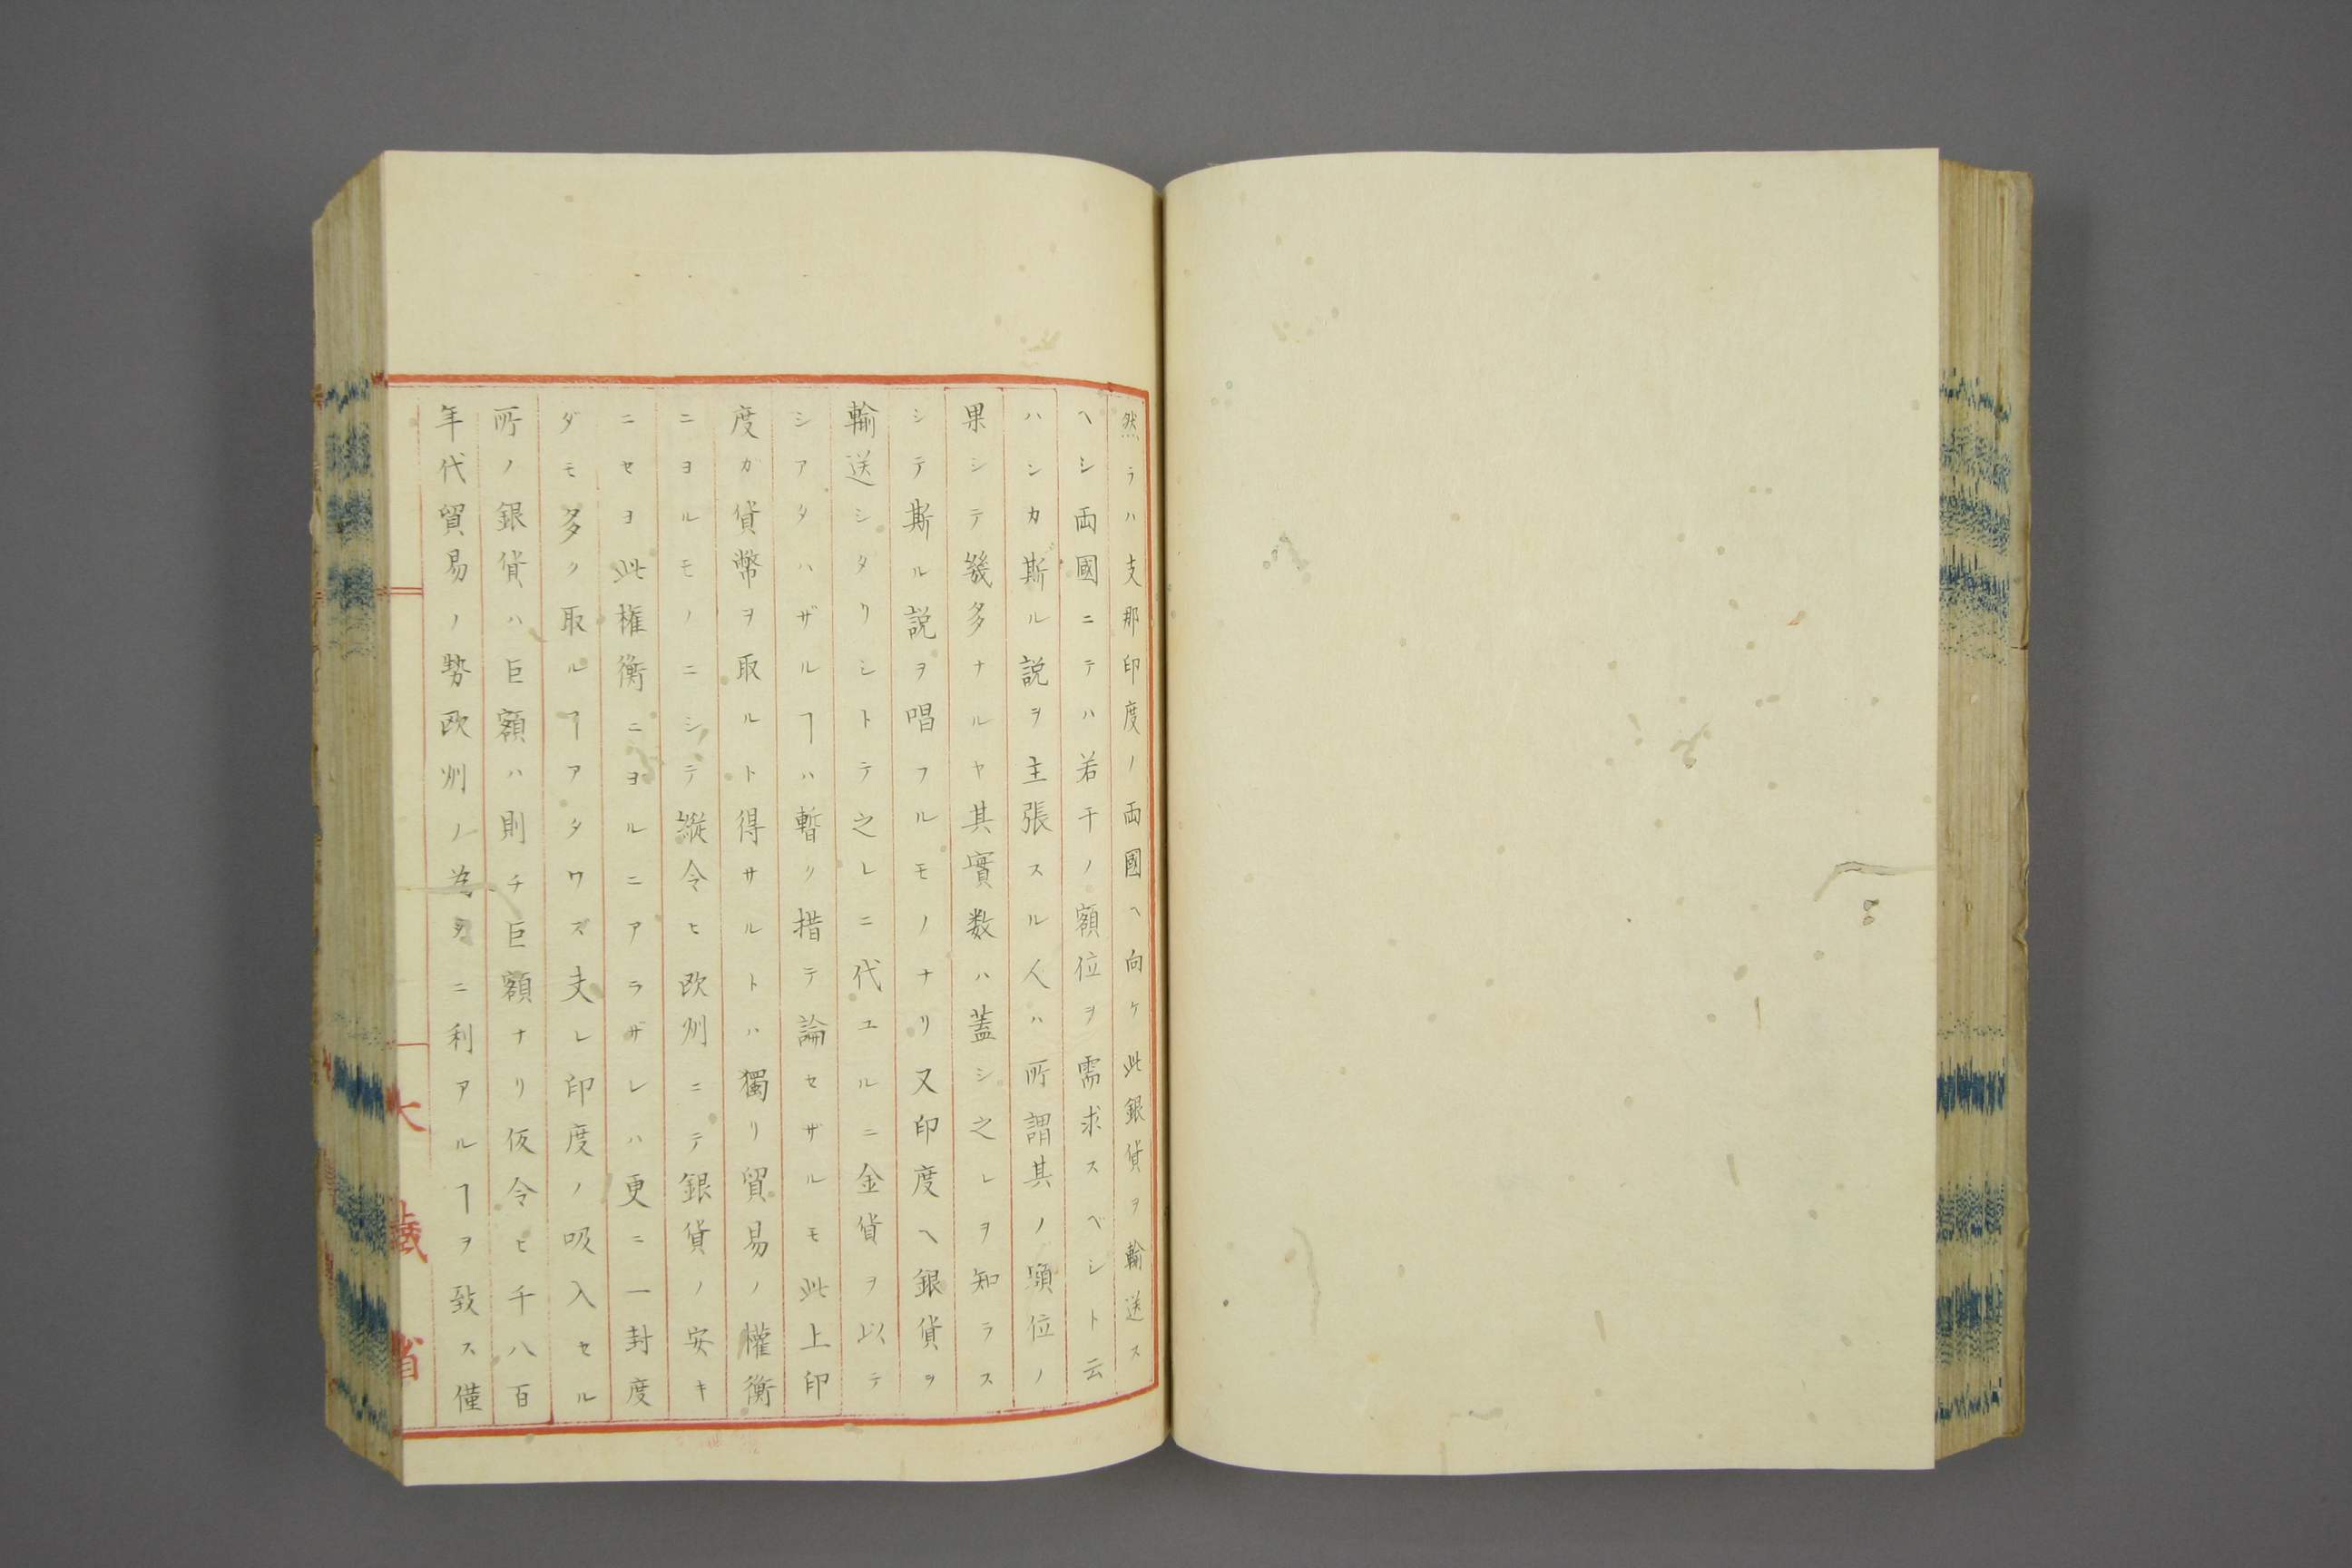 然ラハ支那印度ノ両國ヘ向ケ此銀貨ヲ輸送ス
ヘシ両國ニテハ若干ノ額位ヲ需求スベシト云
ハシカ斯ル説ヲ主張スル人ハ所謂其ノ額位ノ
果シテ幾多ナルヤ其實数ハ蓋シ之レヲ知ラス
シテ斯ル説ヲ唱フルモノナリ又印度ヘ銀貨ヲ
輸送シタリシトテ之レニ代ユルニ金貨ヲ以テ
シアタハザルヿハ暫ク措テ論セザルモ此上印
度ガ貨幣ヲ取ルト得サルトハ獨リ貿易ノ權衡
ニヨルモノニシテ縦令ヒ欧州ニテ銀貨ノ安キ
ニセヨ此権衡ニヨルニアラザレハ更ニ一封度
ダモ多ク取ルヿアタワズ夫レ印度ノ吸入セル
所ノ銀貨ハ巨額ハ則チ巨額ナリ仮令ヒ千八百
年代貿易ノ勢欧州ノ為メニ利アルヿヲ致ス僅
大藏省